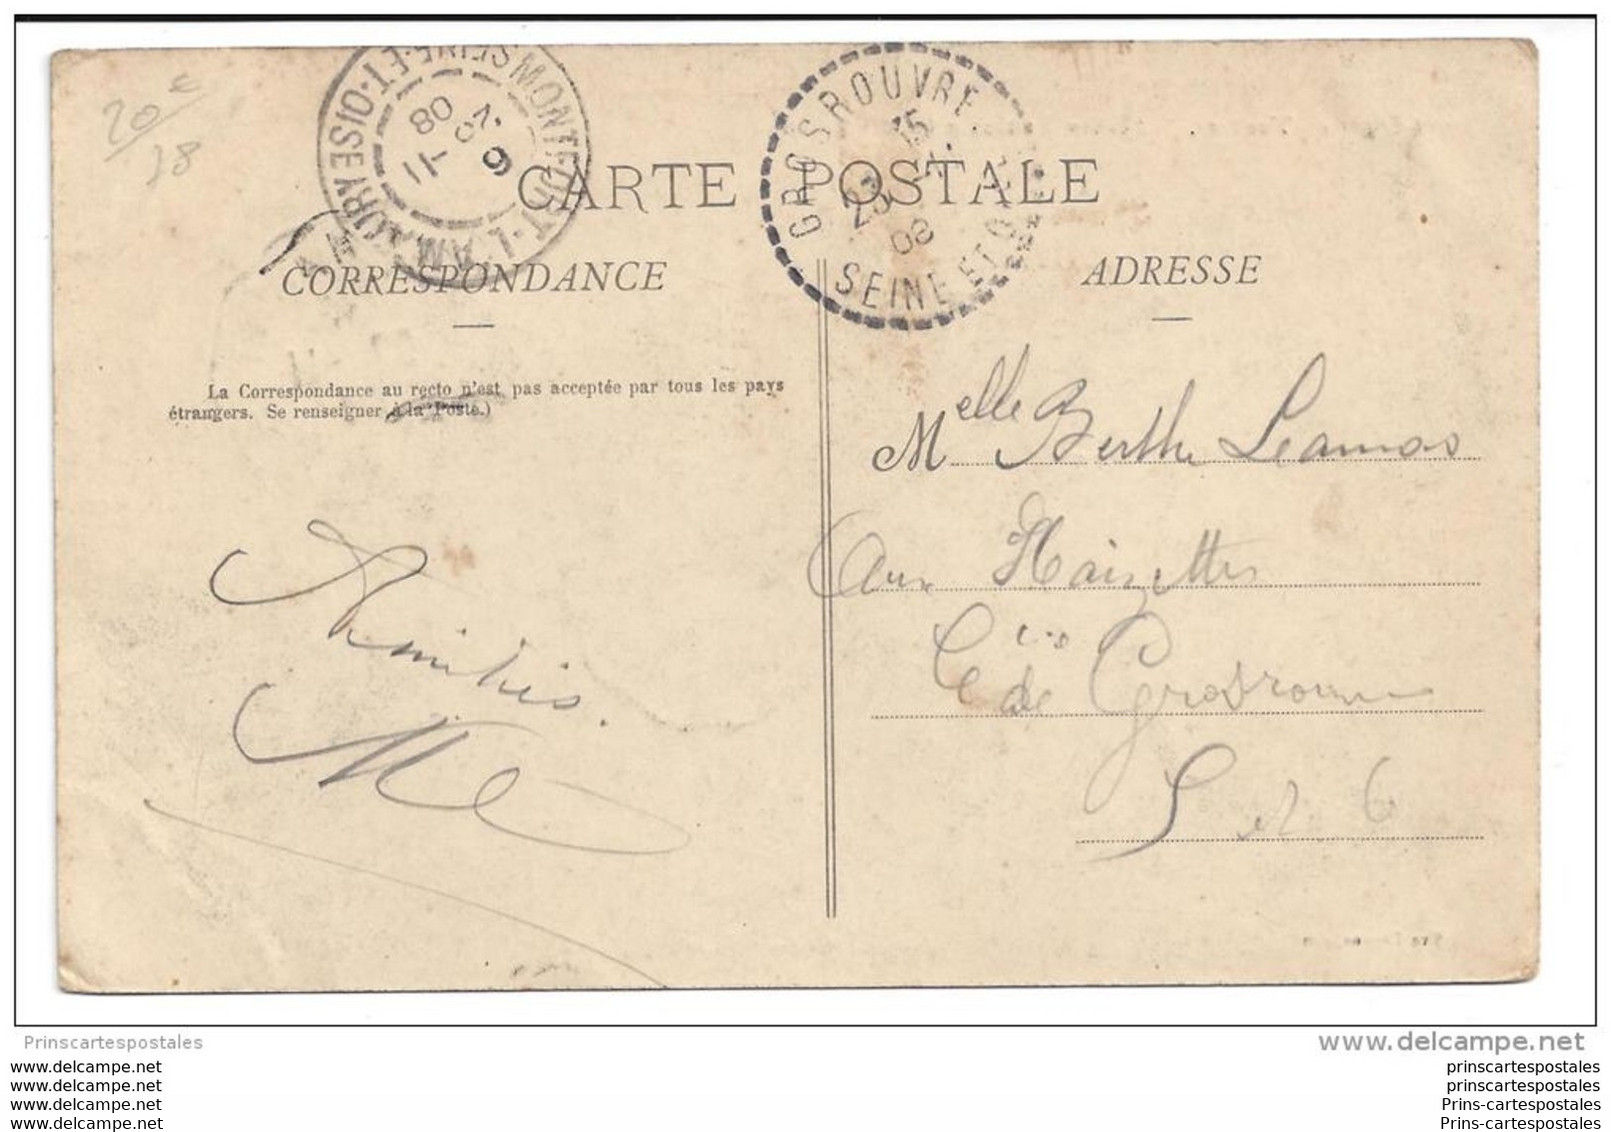 20€
18
MONTFORT-L'AMAURY SEINE-ET-OISE
11
9
08
GROSROUVRE
15
23
08
SEINE ET O
CARTE POSTALE
CORRESPONDANCE
ADRESSE
La Correspondance au recto n'est pas acceptée par tous les pays
étrangers. Se renseigner à la Poste.)
Melle Berthe Leamas
Aux Haizettes
Cne de Grosrouvre
S et O
Amitiés.
Prinscartespostales
www.delcampe.net
www.delcampe.net
www.delcampe.net
www.delcampe.net
www.delcampe.net
prinscartespostales
prinscartespostales
Prins-cartespostales
Prins-cartespostales